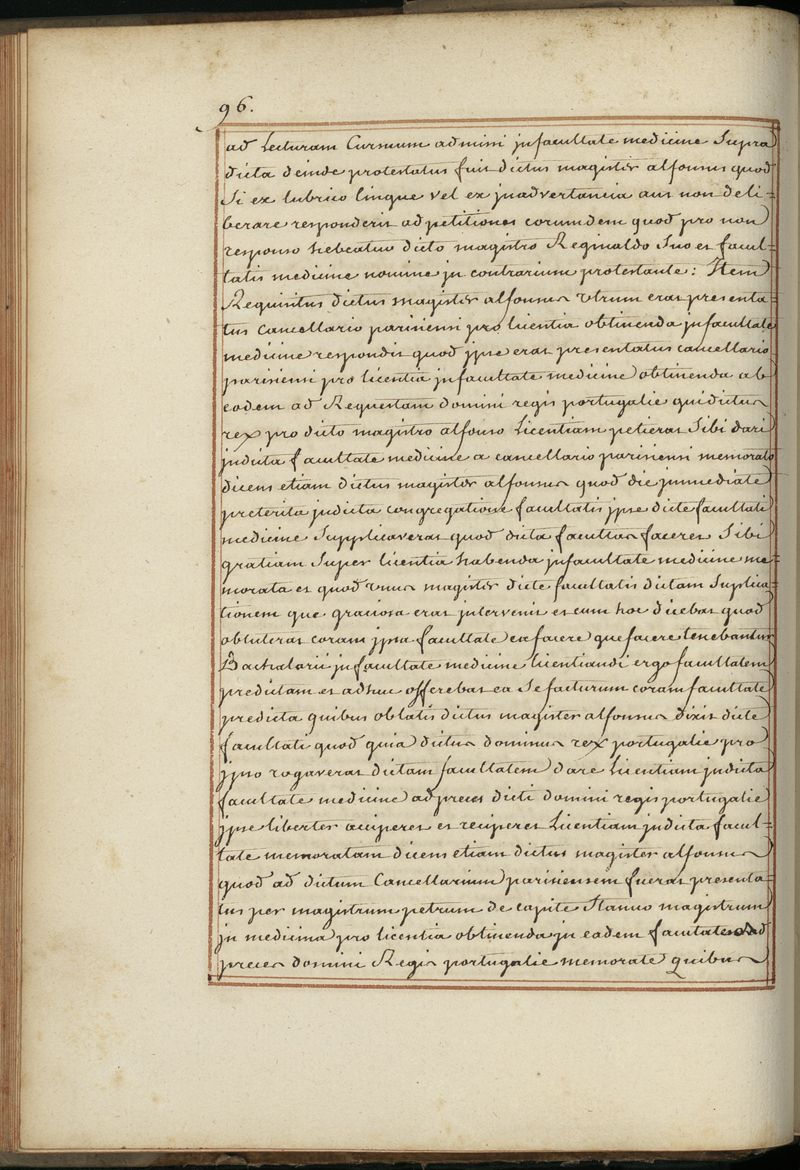 96.
ad Lecturam Cursuum admissi in facultate medicine Supra
dicta deinde protestatus fuit dictus magister alfonsus quod
Si ex lubrico lingue vel ex jnadvertancia aut non deli=
berare responderit ad petitiones eorumdem quod pro non
responso habeatur dicto magistro Reginaldo Suo et facul=
tatis medicine nomine jn contrarium protestante: Jtem
Requisitus dictus magister alfonsus vtrum erat presenta
tus cancellario parisiensi pro licentia obtinenda jn facultate
medicine respondit quod jpse erat presentatus cancellario
parisiensi pro licentia jn facultate medicine obtinenda ab
eodem ad Requestam domini regis portugalie qui dictus
rex pro dicto magistro alfonso Licentiam petierat Sibi dari
jn dicta facultate medicine a cancellario parisiensi memorato
dicens etiam dictus magister alfonsus quod die jmmediate
preterita jn dicta congregatione facultatis jpse dicte facultati
medicine Supplicaverat quod dicta facultas faceret Sibi
gratiam Super licentia habenda jn facultate medicine me=
morata et quod vnus magister dicte facultatis dictam Suplica
tionem que graciosa erat jntervenit et cum hoc dicebat quod
obtulerat coram jpsa facultate ea facere que facere tenebantur
Bachalarii jn facultate medicine licentiandi ergo facultatem
predictam et adhuc offerebat ea Se facturum coram facultate
predicta quibus oblatis dictus magister alfonsus dixit dicte
facultati quod quia dictus dominus rex portugalie pro
jpso rogaverat dictam facultatem dare Licentiam jn dicta
facultate medicine ad preces dicti domini regis portugalie
jpse libenter acciperet et reciperet Licentiam jn dicta facul=
tate memoratam dicens etiam dictus magister alfonsus
quod ad dictum Cancellarium parisiensem fuerat presenta
tus per magistrum petrum de capite Stanno magistrum
jn medicina pro licentia obtinenda jn eadem facultate ad
preces domini Regis portugalie memorate quibus